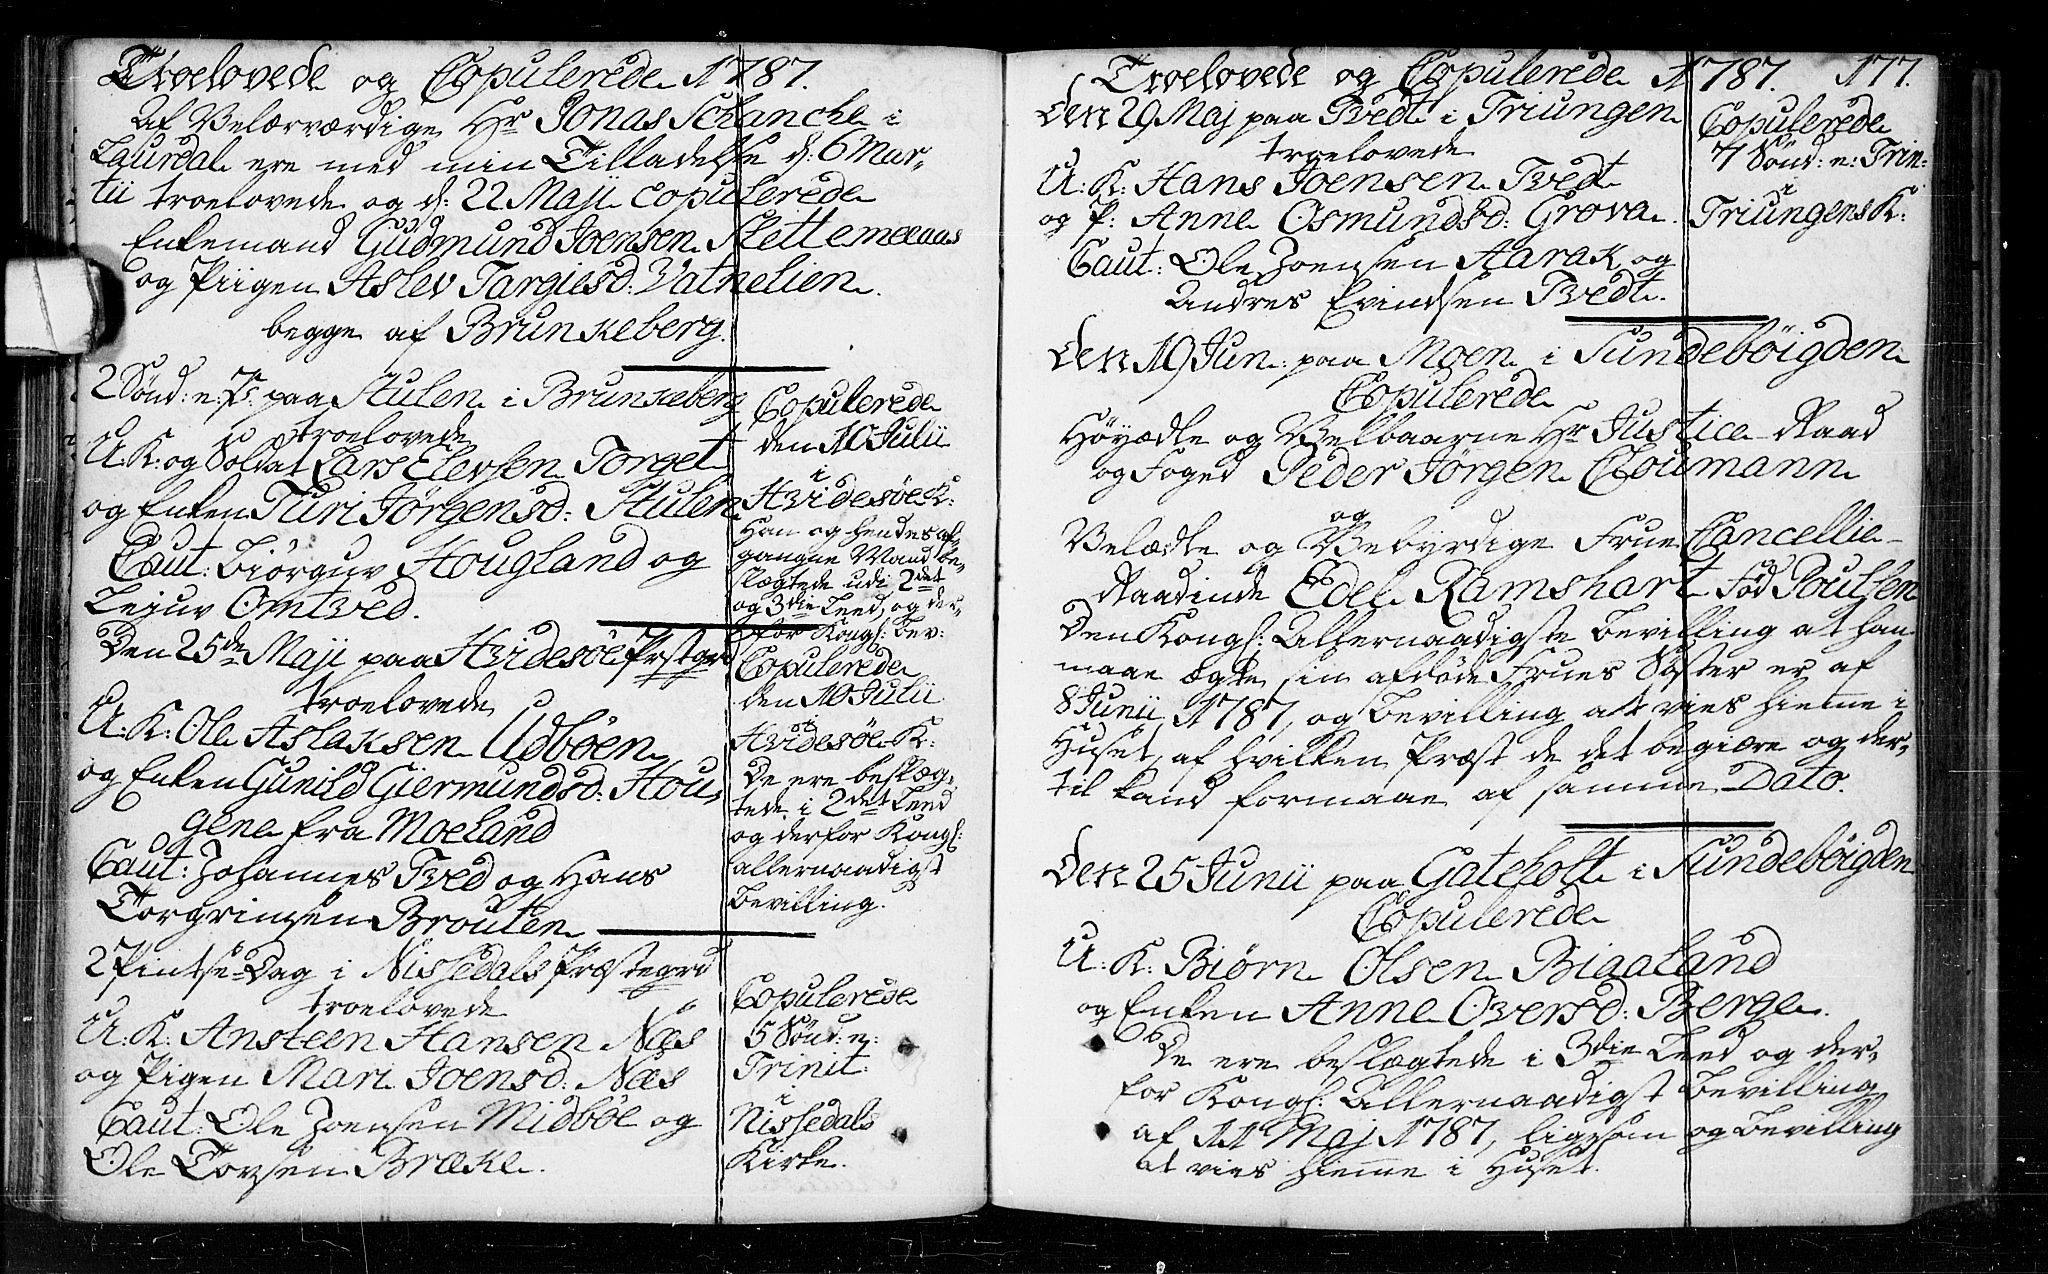 Troelovede og Copulerede 1787.
Af Velærværdige Hr Jonas Schanche i
Laurdal ere med min Tilladelse d: 6 Mar-
tii troelovede og d: 22 Maji copulerede
Enkemand Gudmund Joensen Slettemeaas
og Piigen Aslev Targiesd: Vatnelien
begge af Brunkeberg.
2 Sønd: e: P: paa Stulen i Brunkeberg
troelovede
U: K: og Soldat Lars Elevsen Torget
og Enken Turi Jørgensd: Stulen
Caut: Biørguv Hougland og
Lejuv Omtved.
Copulerede
den 10 Julii
i
Hvidesøe K:
Han og hendes af-
gangne Mand be-
slægtede udi 2det
og 3die Leed, og der-
for Kongl: Bev:
Den 25de Maji paa Hvidesøe Præstgrd
troelovede
U: K: Ole Aslaksen Udbøen
og Enken Gunild Giermundsd: Hou-
gene fra Moeland
Caut: Johannes Tved og Hans
Torgrinsen Brouten
Copulerede
den 10 Julii
i
Hvidesøe K:
De ere beslæg-
tede i 2det Leed
og derfor Kongl:
allernaadigst
Bevilling.
2 Pintse-Dag i Nissedals Præstegrd
troelovede
U: K: Ansteen Hansen Næs
og Pigen Mari Joensd: Næs
Caut: Ole Joensen Midbøe og
Ole Tovsen Bræke.
Copulerede
5 Sønd: e:
Trinit:
i
Nissedals
Kirke.
Troelovede og Copulerede 1787. 177.
Den 29 Maj paa Tvedt i Triungen
troelovede
U: K: Hans Joensen Tvedt
og P: Anne Osmundsd: Grova
Caut: Ole Joensen Aarak og
Andres Evindsen Tvedt.
Copulerede
7 Sønd: e: Trin:
i
Triungens K:
Den 19 Jun: paa Moen i Sundebøigden
Copulerede
Høyædle og Velbaarne Hr Justice-Raad
og Foged Peder Jørgen Cloumann
og
Velædle og Velbyrdige Frue Cancellie-
Raadinde Edel Ramshart Fød Poulsen
Den Kongl: Allernaadigste Bevilling at han
maae ægte sin afdøde Frues Søster er af
8 Junii 1787, og Bevilling at vies hieme i
Huset, af hvilken Præst de det begiære og der-
til kand formaae af samme Dato.
Den 25 Junii paa Gateholt i Sundebøigden
Copulerede
U: K: Biørn Olsen Bigaland
og Enken Anne Oversd: Berge.
Ob
De ere beslægtede i 3die Leed og der-
for Kongl: Allernaadigst Bevilling
af 11 Maj 1787, ligesom og Bevilling
at vies hieme i Huset.